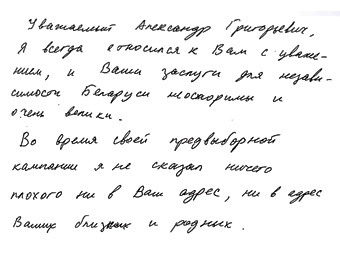 Уважаемый Александр Григорьевич,
Я всегда относился к Вам с уваже-
нием, и Ваши заслуги для незави-
симости Беларуси неоспоримы и
очень велики.
Во время своей предвыборной
кампании я не сказал ничего
плохого ни в Ваш адрес, ни в адрес
Ваших близких и родных.